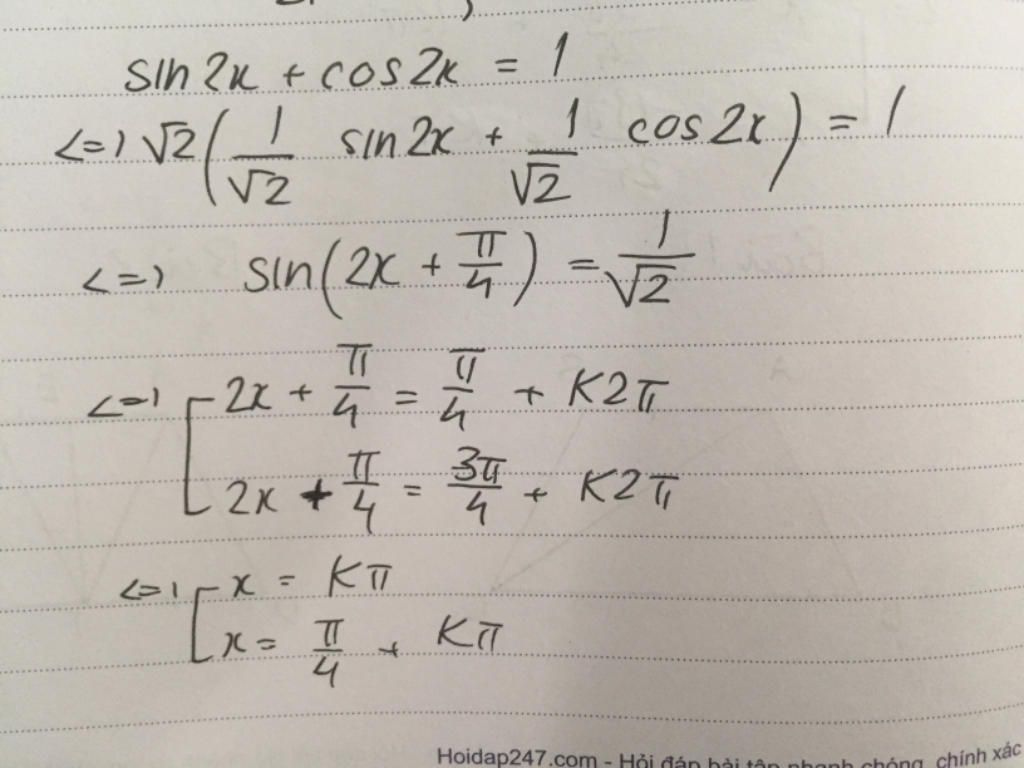 sin2x + cos2x = 1
<=> √2(1/√2 sin2x + 1/√2 cos2x) = 1
<=> sin(2x + π/4) = 1/√2
<=> [ 2x + π/4 = π/4 + K2π
2x + π/4 = 3π/4 + K2π
<=> [ x = Kπ
x = π/4 + Kπ
Hoidap247.com - Hỏi đáp bài tập nhanh chóng, chính xác